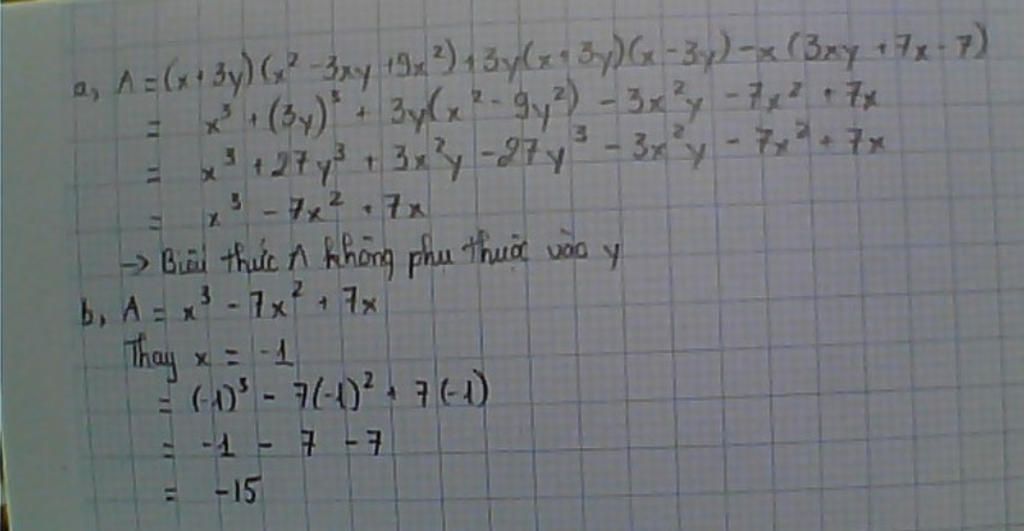 a, A = (x + 3y)(x² - 3xy + 9x²) + 3y(x + 3y)(x - 3y) - x(3xy + 7x - 7)
= x³ + (3y)³ + 3y(x² - 9y²) - 3x²y - 7x² + 7x
= x³ + 27y³ + 3x²y - 27y³ - 3x²y - 7x² + 7x
= x³ - 7x² + 7x
→ Biểu thức A không phụ thuộc vào y
b, A = x³ - 7x² + 7x
Thay x = -1
= (-1)³ - 7(-1)² + 7(-1)
= -1 - 7 - 7
= -15